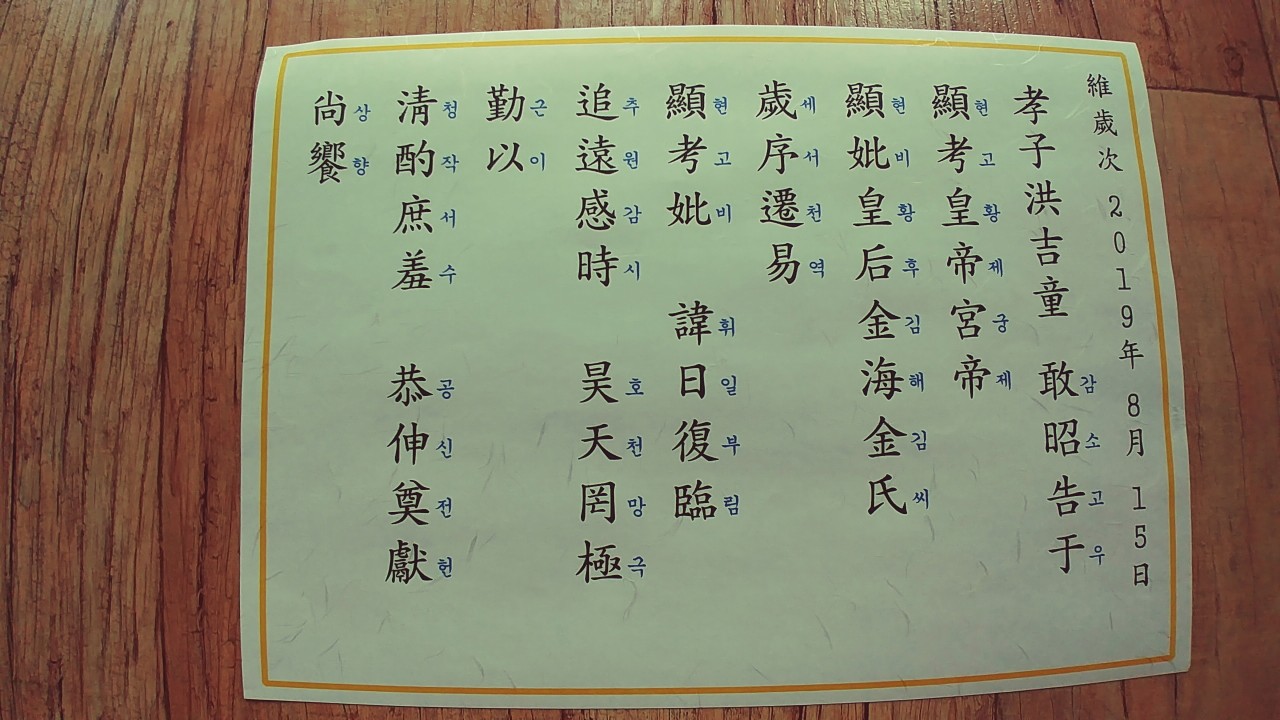 維歲次 2019年 8月 15日
孝子洪吉童 敢감昭소告고于우
顯현考고皇황帝제宮궁帝제
顯현妣비皇황后후金김海해金김氏씨
歲세序서遷천易역
顯현考고妣비 諱휘日일復부臨림
追추遠원感감時시 昊호天천罔망極극
勤근以이
淸청酌작庶서羞수 恭공伸신奠전獻헌
尙상饗향